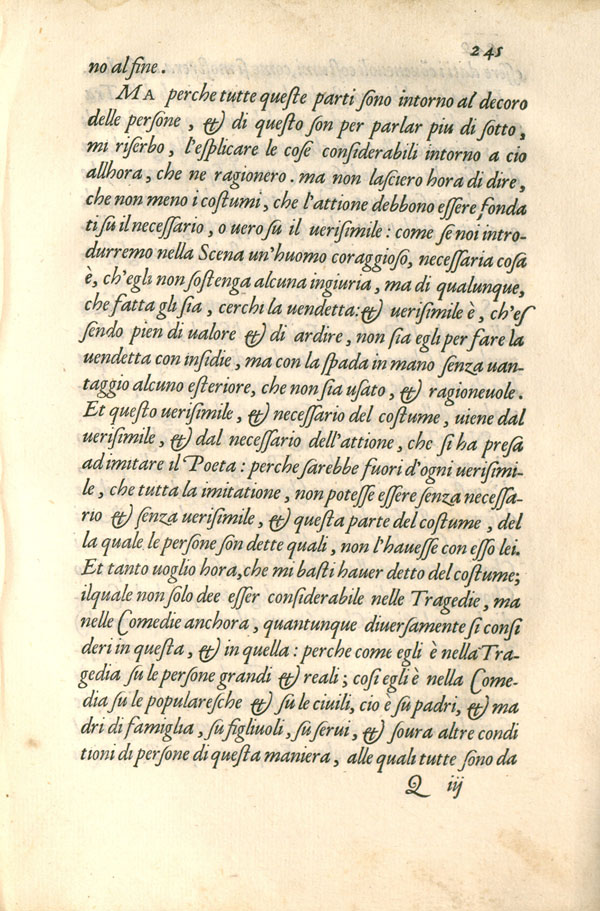 245
no al fine.
MA perche tutte queste parti sono intorno al decoro
delle persone, & di questo son per parlar piu di sotto,
mi riserbo, l'esplicare le cose considerabili intorno a cio
allhora, che ne ragionero. ma non lasciero hora di dire,
che non meno i costumi, che l'attione debbono essere fonda
ti sù il necessario, o uero sù il uerisimile: come se noi intro-
durremo nella Scena un'huomo coraggioso, necessaria cosa
è, ch'egli non sostenga alcuna ingiuria, ma di qualunque,
che fatta gli sia, cerchi la uendetta: & uerisimile è, ch'es
sendo pien di ualore & di ardire, non sia egli per fare la
uendetta con insidie, ma con la spada in mano senza uan-
taggio alcuno esteriore, che non sia usato, & ragioneuole.
Et questo uerisimile, & necessario del costume, uiene dal
uerisimile, & dal necessario dell'attione, che si ha presa
ad imitare il Poeta: perche sarebbe fuori d'ogni uerisimi-
le, che tutta la imitatione, non potesse essere senza necessa-
rio & senza uerisimile, & questa parte del costume, del
la quale le persone son dette quali, non l'hauesse con esso lei.
Et tanto uoglio hora, che mi basti hauer detto del costume;
ilquale non solo dee esser considerabile nelle Tragedie, ma
nelle Comedie anchora, quantunque diuersamente si consi
deri in questa, & in quella: perche come egli è nella Tra-
gedia su le persone grandi & reali; cosi egli è nella Come-
dia su le popularesche & sù le ciuili, cio è sù padri, & ma
dri di famiglia, su figliuoli, sù serui, & soura altre condi
tioni di persone di questa maniera, alle quali tutte sono da
Q iij